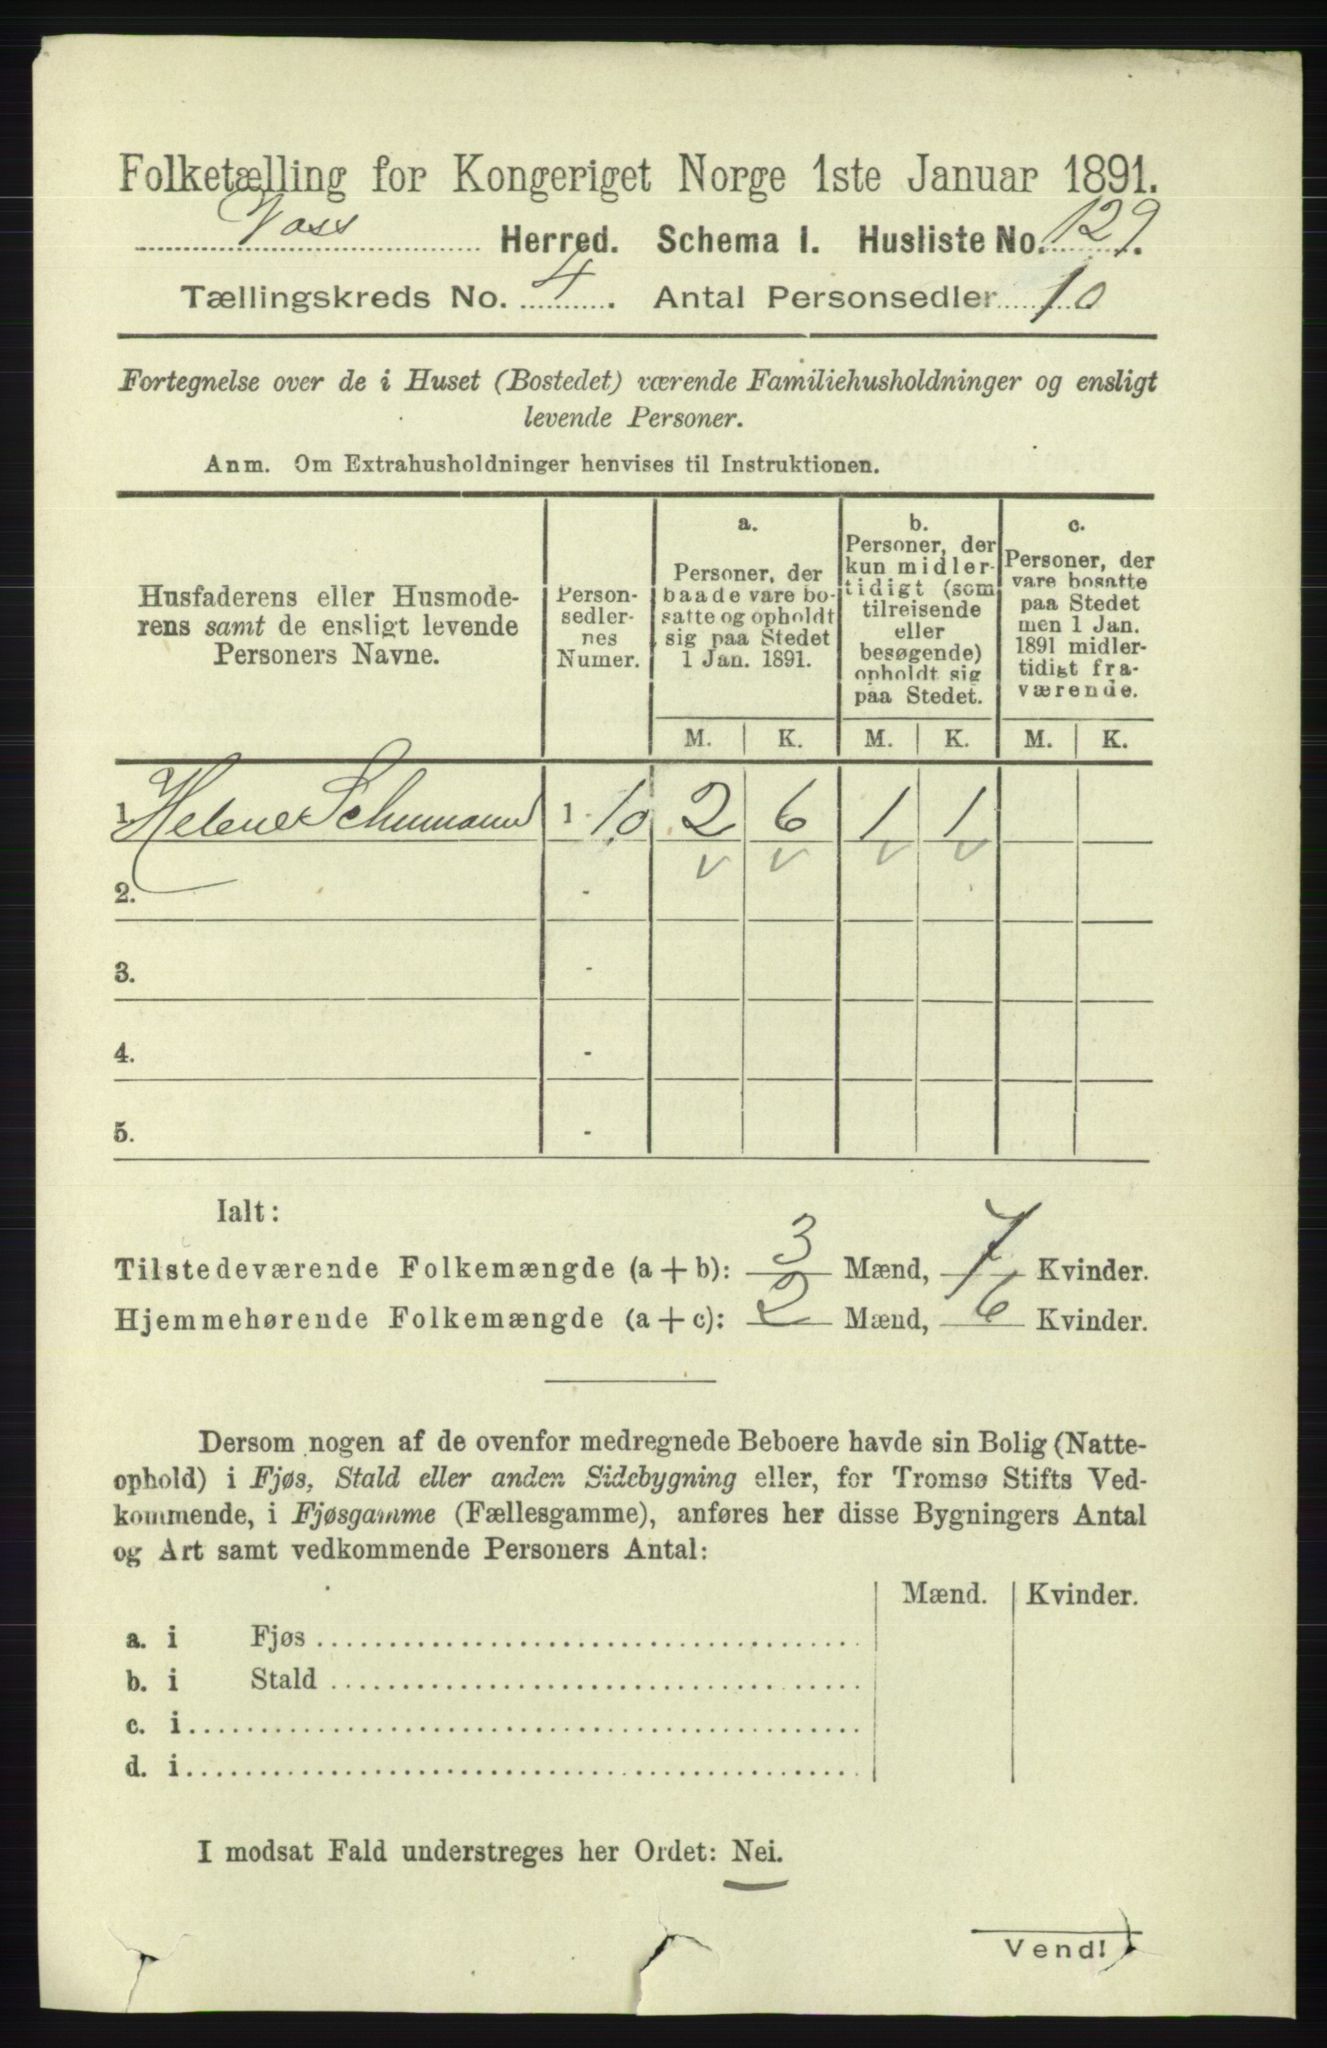 Folketælling for Kongeriget Norge 1ste Januar 1891.
Voss Herred. Schema I. Husliste No. 129.
Tællingskreds No. 4. Antal Personsedler 10
Fortegnelse over de i Huset (Bostedet) værende Familiehusholdninger og ensligt
levende Personer.
Anm. Om Extrahusholdninger henvises til Instruktionen.
Husfaderens eller Husmode-
rens samt de ensligt levende
Personers Navne.
Person-
sedler-
nes
Numer.
a.
Personer, der
baade vare bo-
satte og opholdt
sig paa Stedet
1 Jan. 1891.
b.
Personer, der
kun midler-
tidigt (som
tilreisende
eller
besøgende)
opholdt sig
paa Stedet.
c.
Personer, der
vare bosatte
paa Stedet
men 1 Jan.
1891 midler-
tidigt fra-
værende.
M. K. M. K. M. K.
1. Helene Schumann 1 - 10 2 6 1 1
v v v v
2. -
3. -
4. -
5. -
Ialt:
Tilstedeværende Folkemængde (a + b): 3 Mænd, 7 Kvinder.
Hjemmehørende Folkemængde (a + c): 2 Mænd, 6 Kvinder.
Dersom nogen af de ovenfor medregnede Beboere havde sin Bolig (Natte-
ophold) i Fjøs, Stald eller anden Sidebygning eller, for Tromsø Stifts Ved-
kommende, i Fjøsgamme (Fællesgamme), anføres her disse Bygningers Antal
og Art samt vedkommende Personers Antal:
Mænd. Kvinder.
a. i Fjøs
b. i Stald
c. i
d. i
I modsat Fald understreges her Ordet: Nei.
Vend!